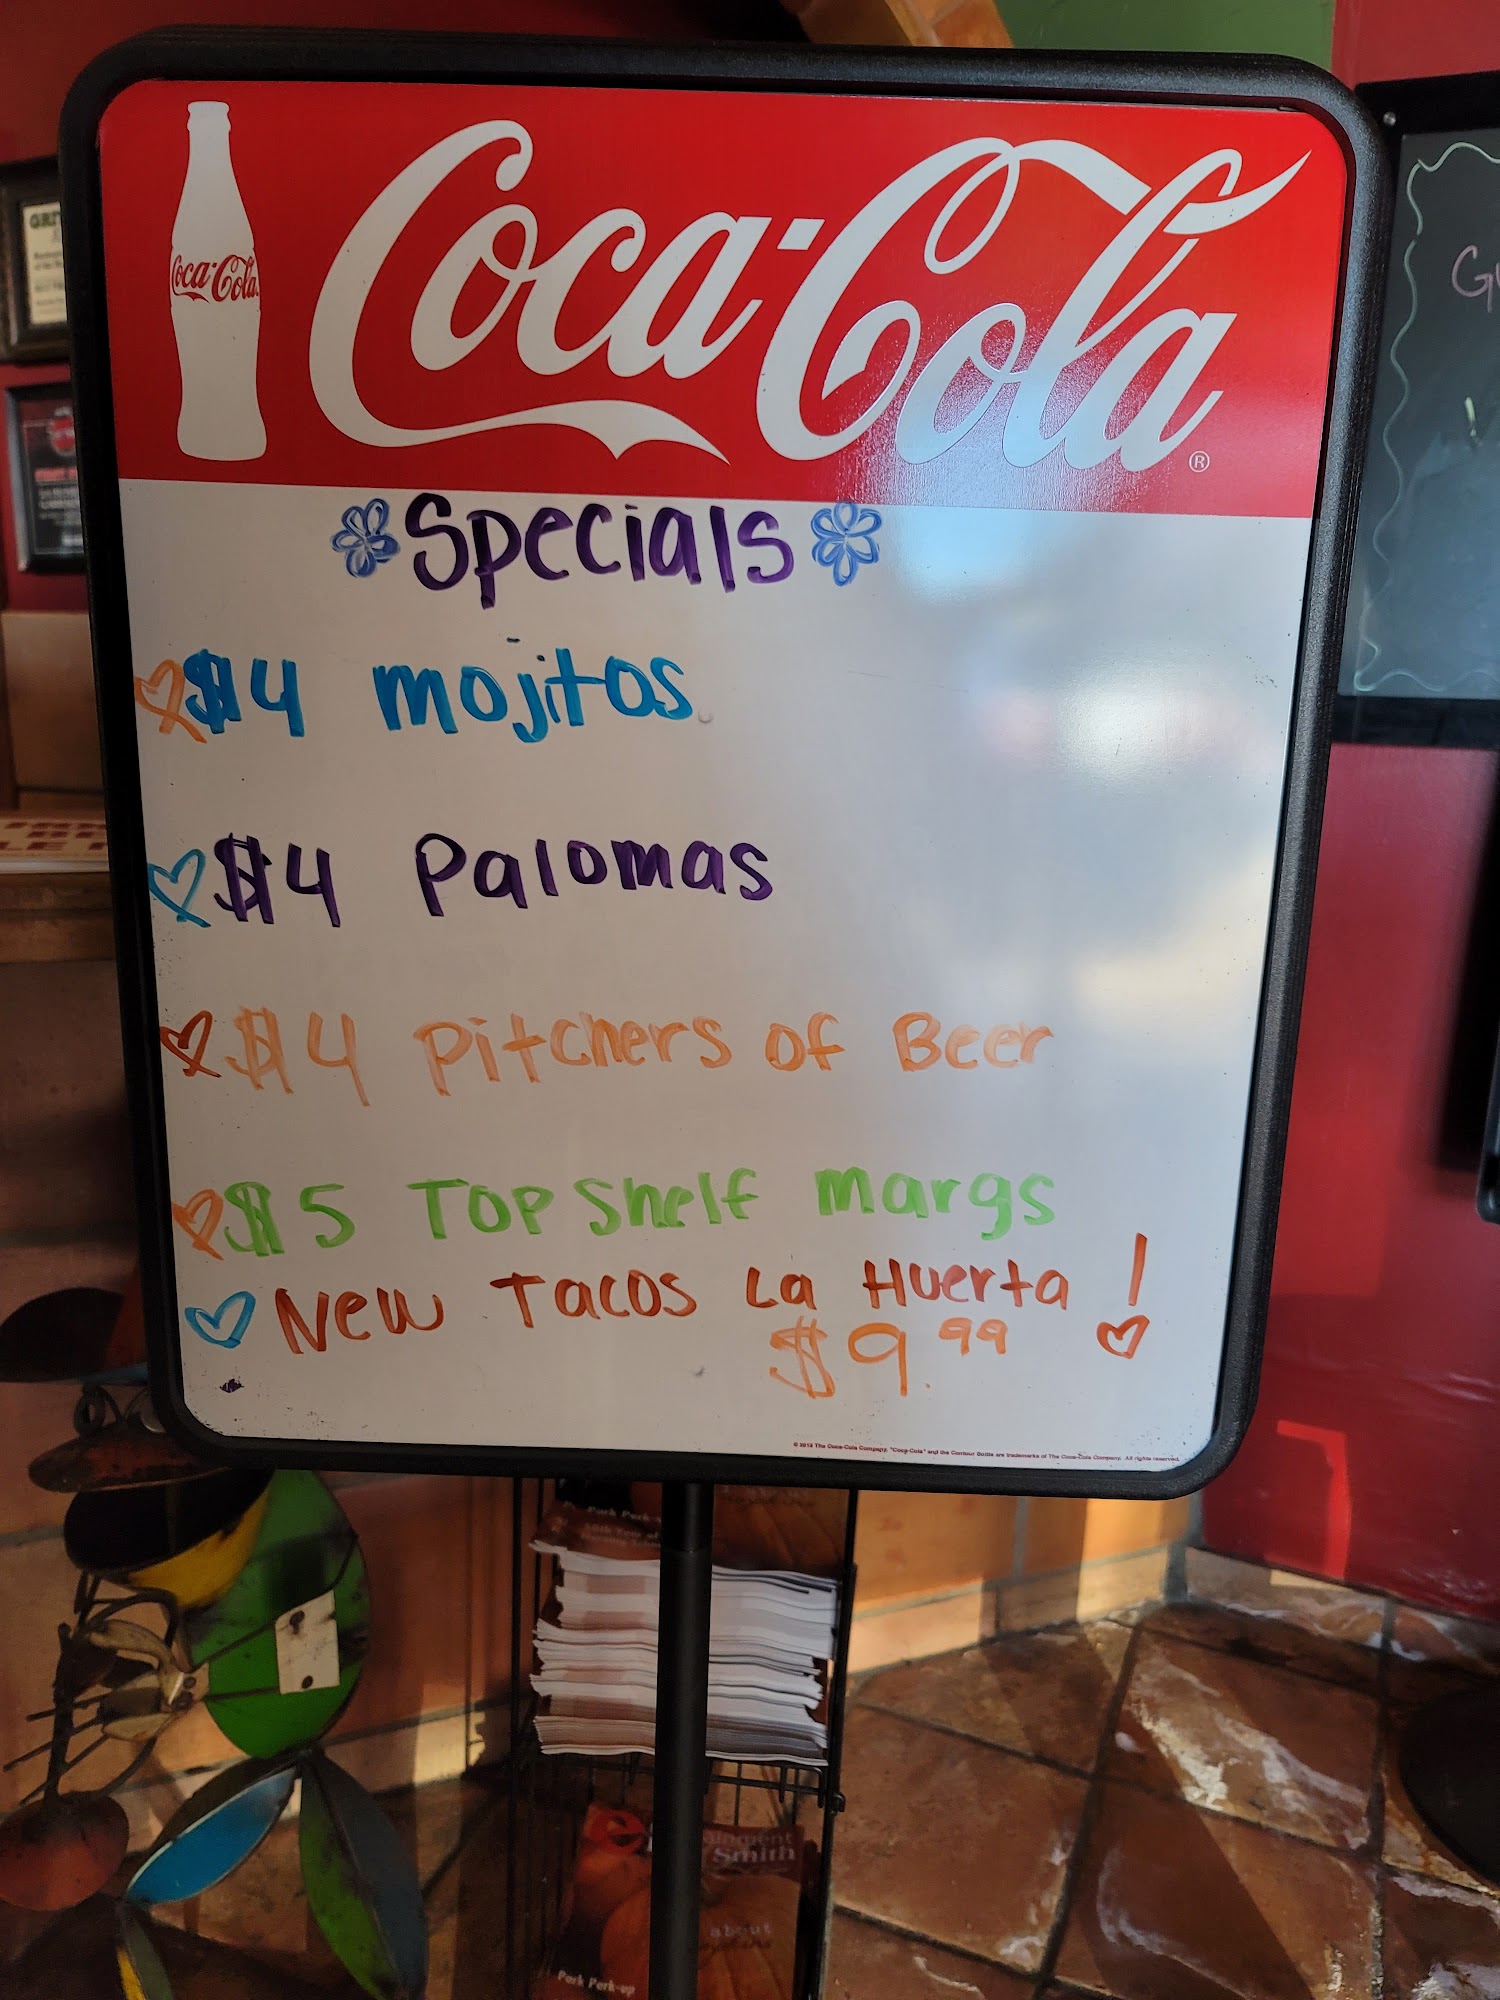 Coca-Cola
Coca-Cola®
Specials
$4 mojitos
$4 Palomas
$4 Pitchers of Beer
$5 Top Shelf margs
New Tacos La Huerta!
$9.99
© 2013 The Coca-Cola Company. "Coca-Cola" and the Contour Bottle are trademarks of The Coca-Cola Company. All rights reserved.
Smith
about
Pork Perk-up